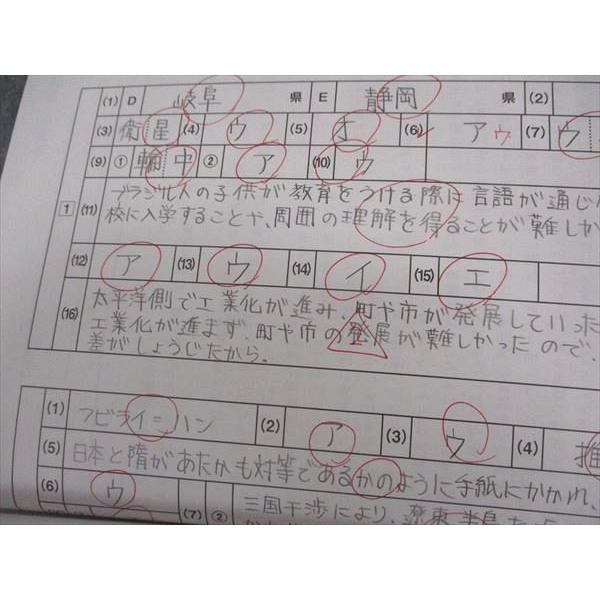 (1) D 岐阜 県 E 静岡 県 (2)
(3) 衛星 (4) ウ (5) オ (6) アゥ (7) ウ
(9) ① 輪中 ② ア (10) ウ
1 (11) ブラジル人の子供が教育をうける際に言語が通じ
校に入学することや、周囲の理解を得ることが難しか
(12) ア (13) ウ (14) イ (15) エ
(16) 太平洋側で工業化が進み、町や市が発展していった
工業化が進まず、町や市の発展が難しかったので、
差がしょうじたから。
(1) フビライ=ハン (2) ア (3) ウ (4) 推
(5) 日本と隋があたかも対等であるかのように手紙にかかれ、
(6) ウ (7) ② 三国干渉により、遼東半島